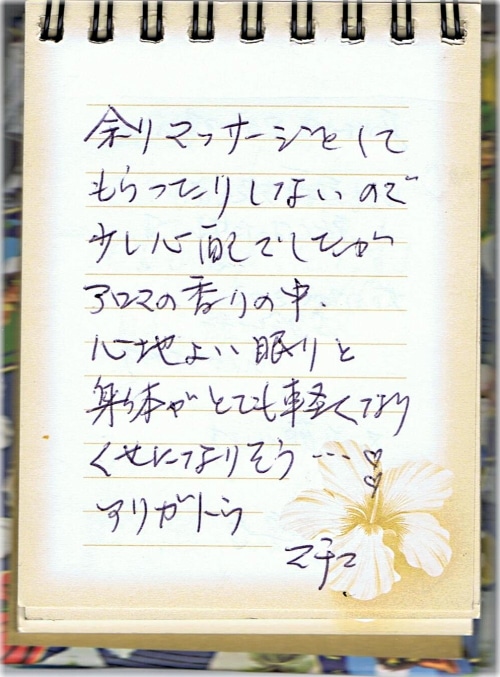 余りマッサージをして
もらったりしないので
少し心配でしたが
アロマの香りの中、
心地よい眠りと
身体がとても軽くなり
くせになりそう…♡♡
アリガトウ
マチコ